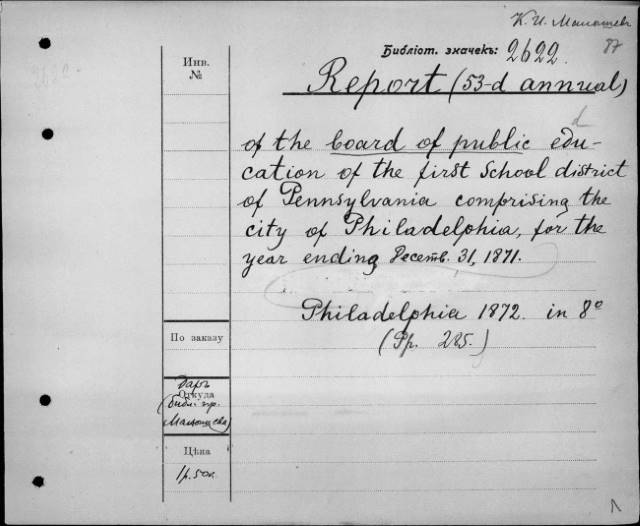 К. И. Малышев
87
Библіот. значекъ: 2622.
2622
Инв.
№
Report (53-d annual)
d
of the board of public edu-
cation of the first School district
of Pennsylvania comprising the
city of Philadelphia, for the
year ending Десемв. 31, 1871.
Philadelphia 1872. in 8º
(Pp. 285.)
По заказу
Даръ
Откуда
(Библ. пр.
Малышева)
Цѣна
1р. 50к.